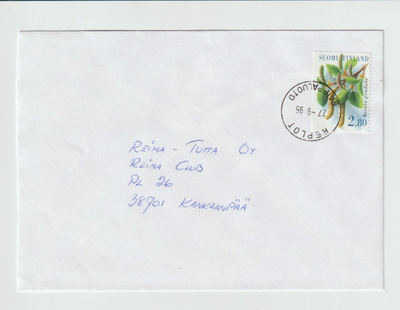 SUOMI FINLAND
Betula pendula
2.80
REPLOT
27-9-95
RAIPPALUOTO
Reima - Tutta Oy
Reima Club
PL 26
38701 Kankaanpää